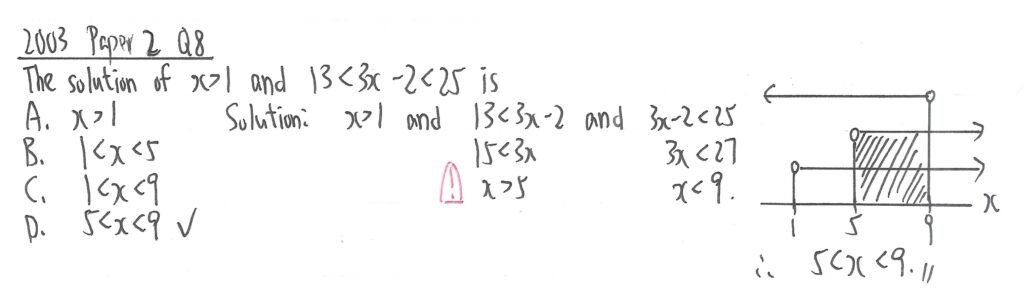 2003 Paper 2 Q8
The solution of x>1 and 13<3x-2<25 is
A. x>1
B. 1<x<5
C. 1<x<9
D. 5<x<9 ✓
Solution: x>1 and 13<3x-2 and 3x-2<25
15<3x 3x<27
! x>5 x<9.
1 5 9 x
∴ 5<x<9.//